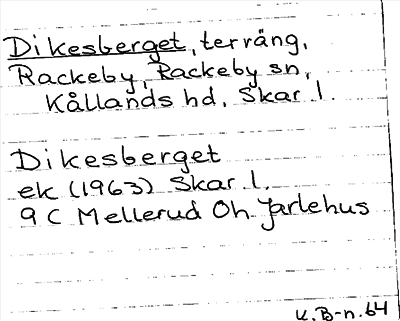 Dikesberget, terräng,
Rackeby, Rackeby sn,
Kållands hd, Skar. l.
Dikesberget
ek (1963) Skar. l.
9 C Mellerud Öh Jarlehus
K. B-n. 64